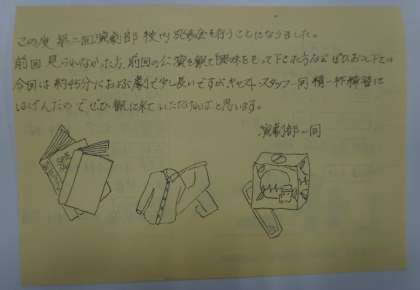 この度 第二回演劇部 校内発表会を行うことになりました。
前回 見られなかった方、前回の公演を観て興味をもって下さった方など ぜひお越し下さい
今回は約45分におよぶ劇で少し長いですがキャスト・スタッフ一同 精一杯練習に
はげんだので ぜひ観に来ていただければと思います。
演劇部一同